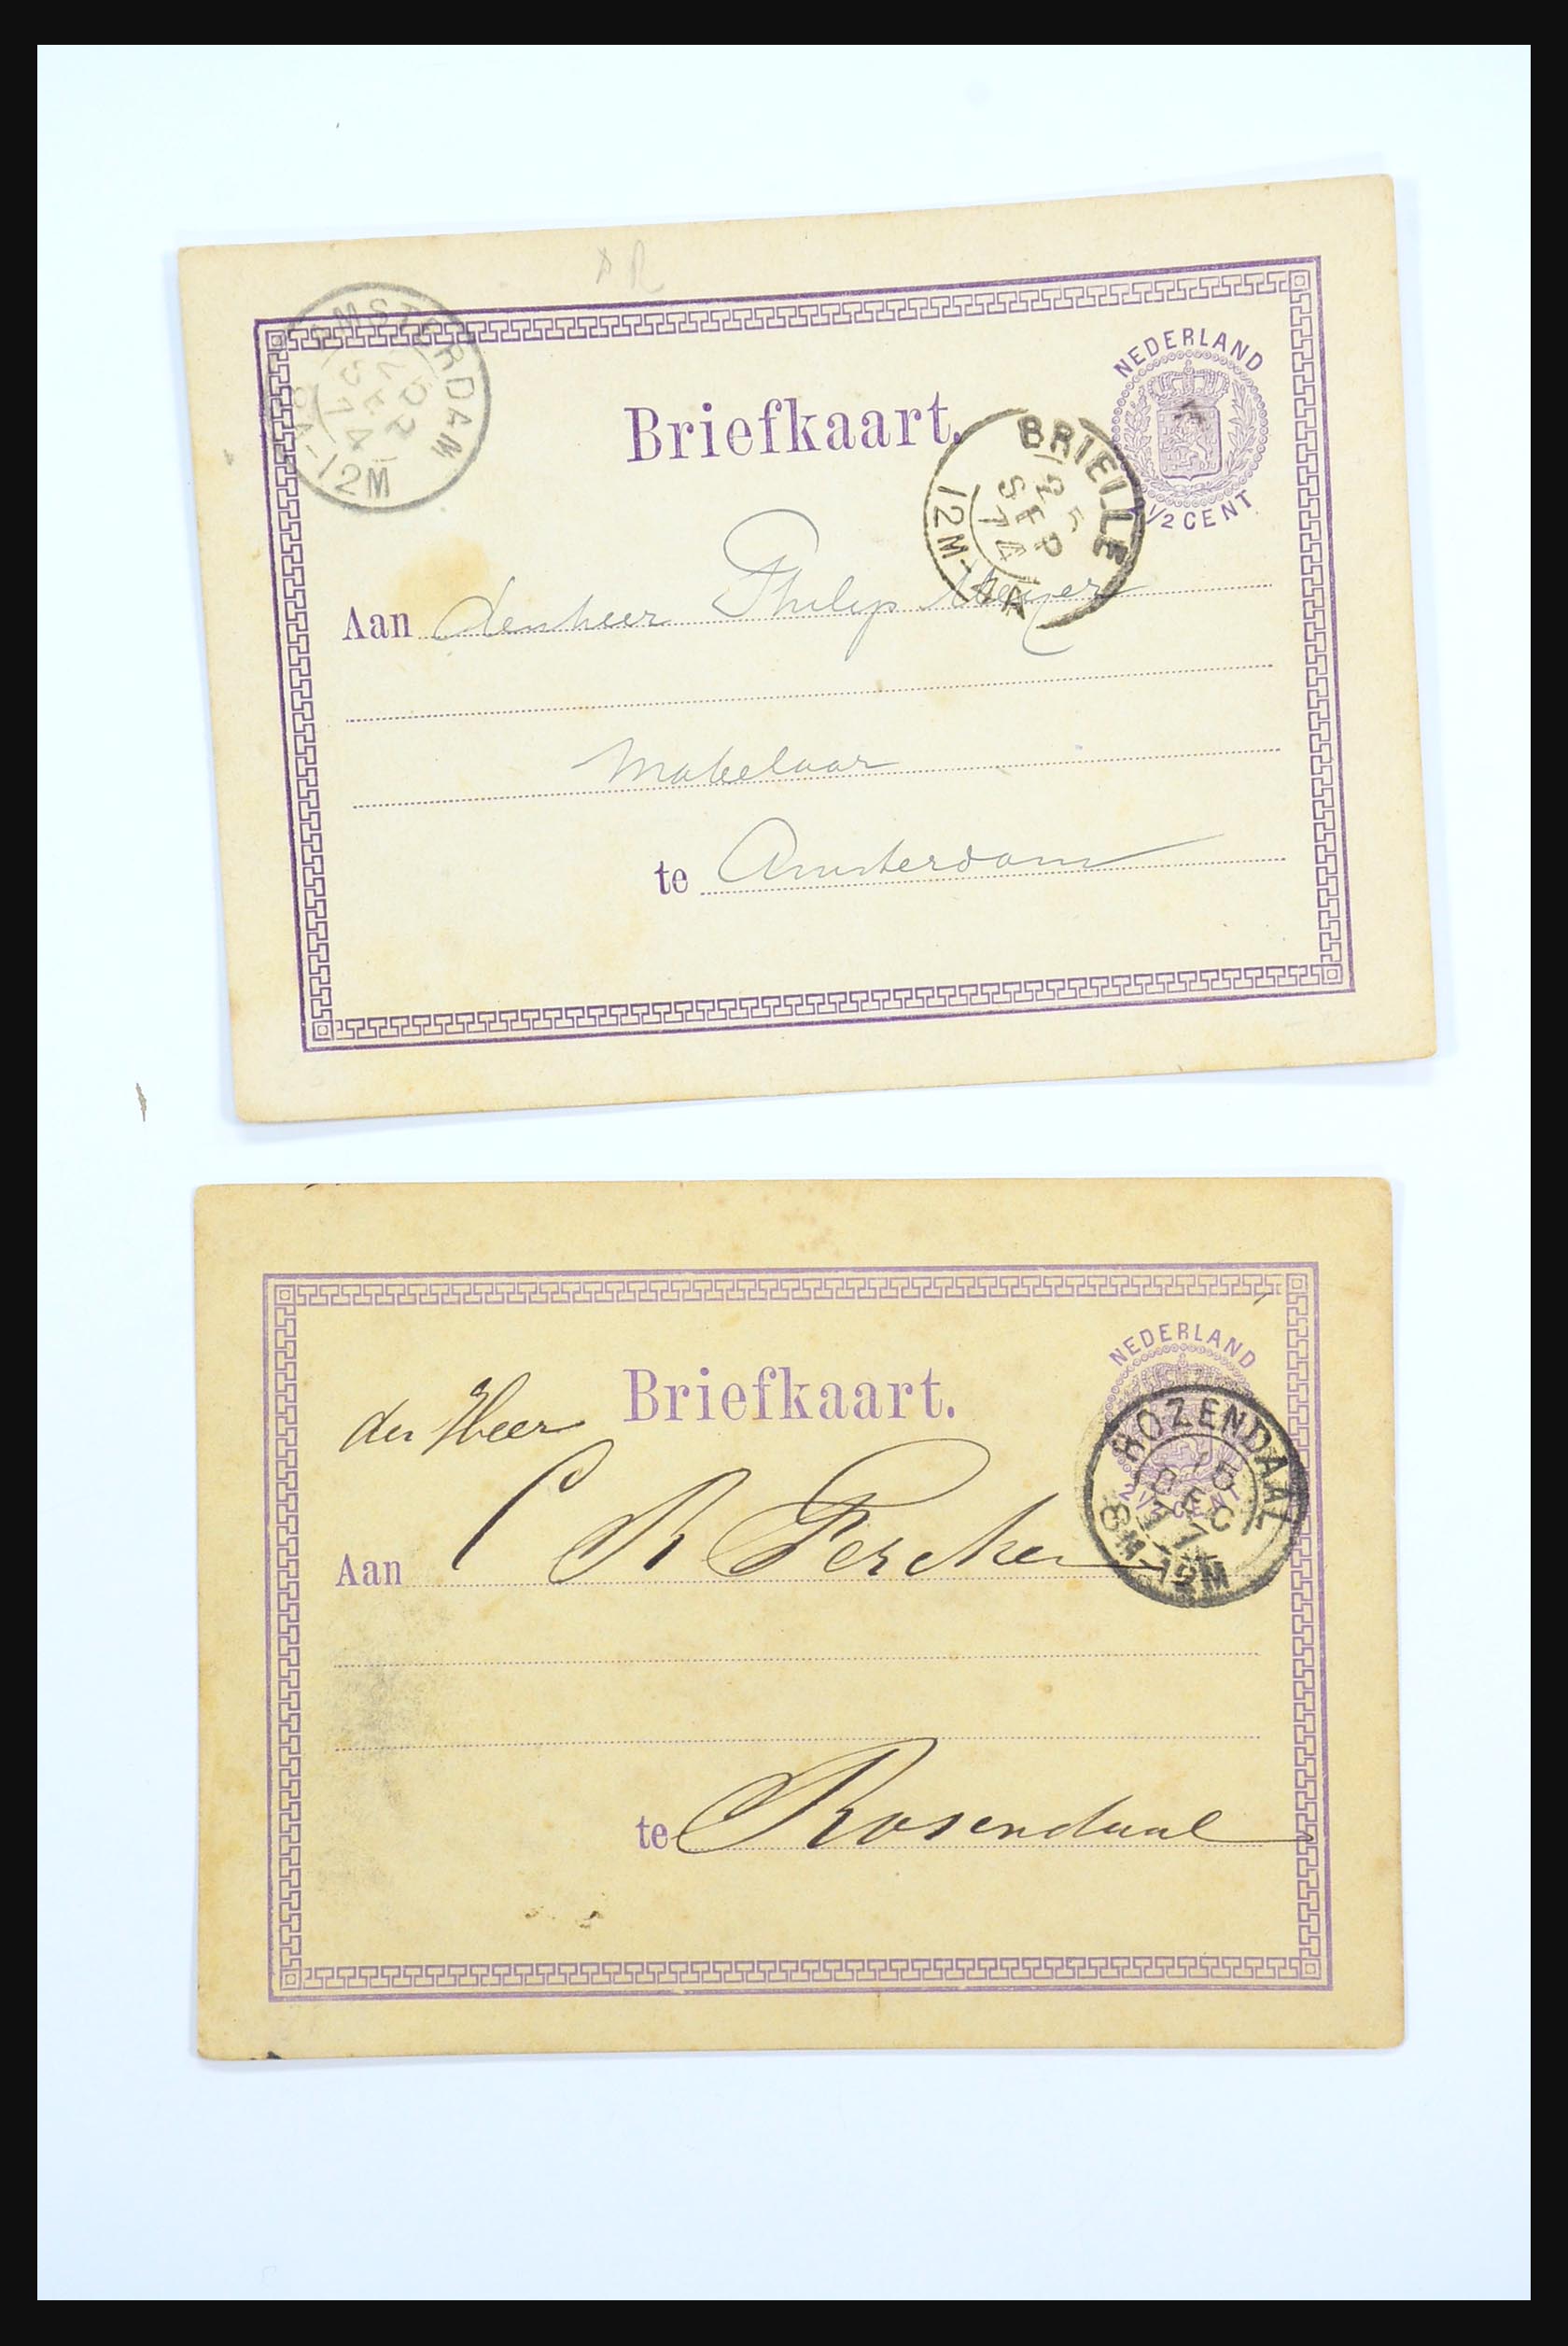 AMSTERDAM
25
SEP
74
-12M
NEDERLAND
Briefkaart.
1/2 CENT
BRIELLE
25
SEP
74
12M-4A
Aan den heer Philip Meijer
Makelaar
te Amsterdam
NEDERLAND
Briefkaart.
2 1/2 CENT
ROZENDAAL
15
DEC
77
8M-12M
den Heer
Aan C R
te Rosendaal